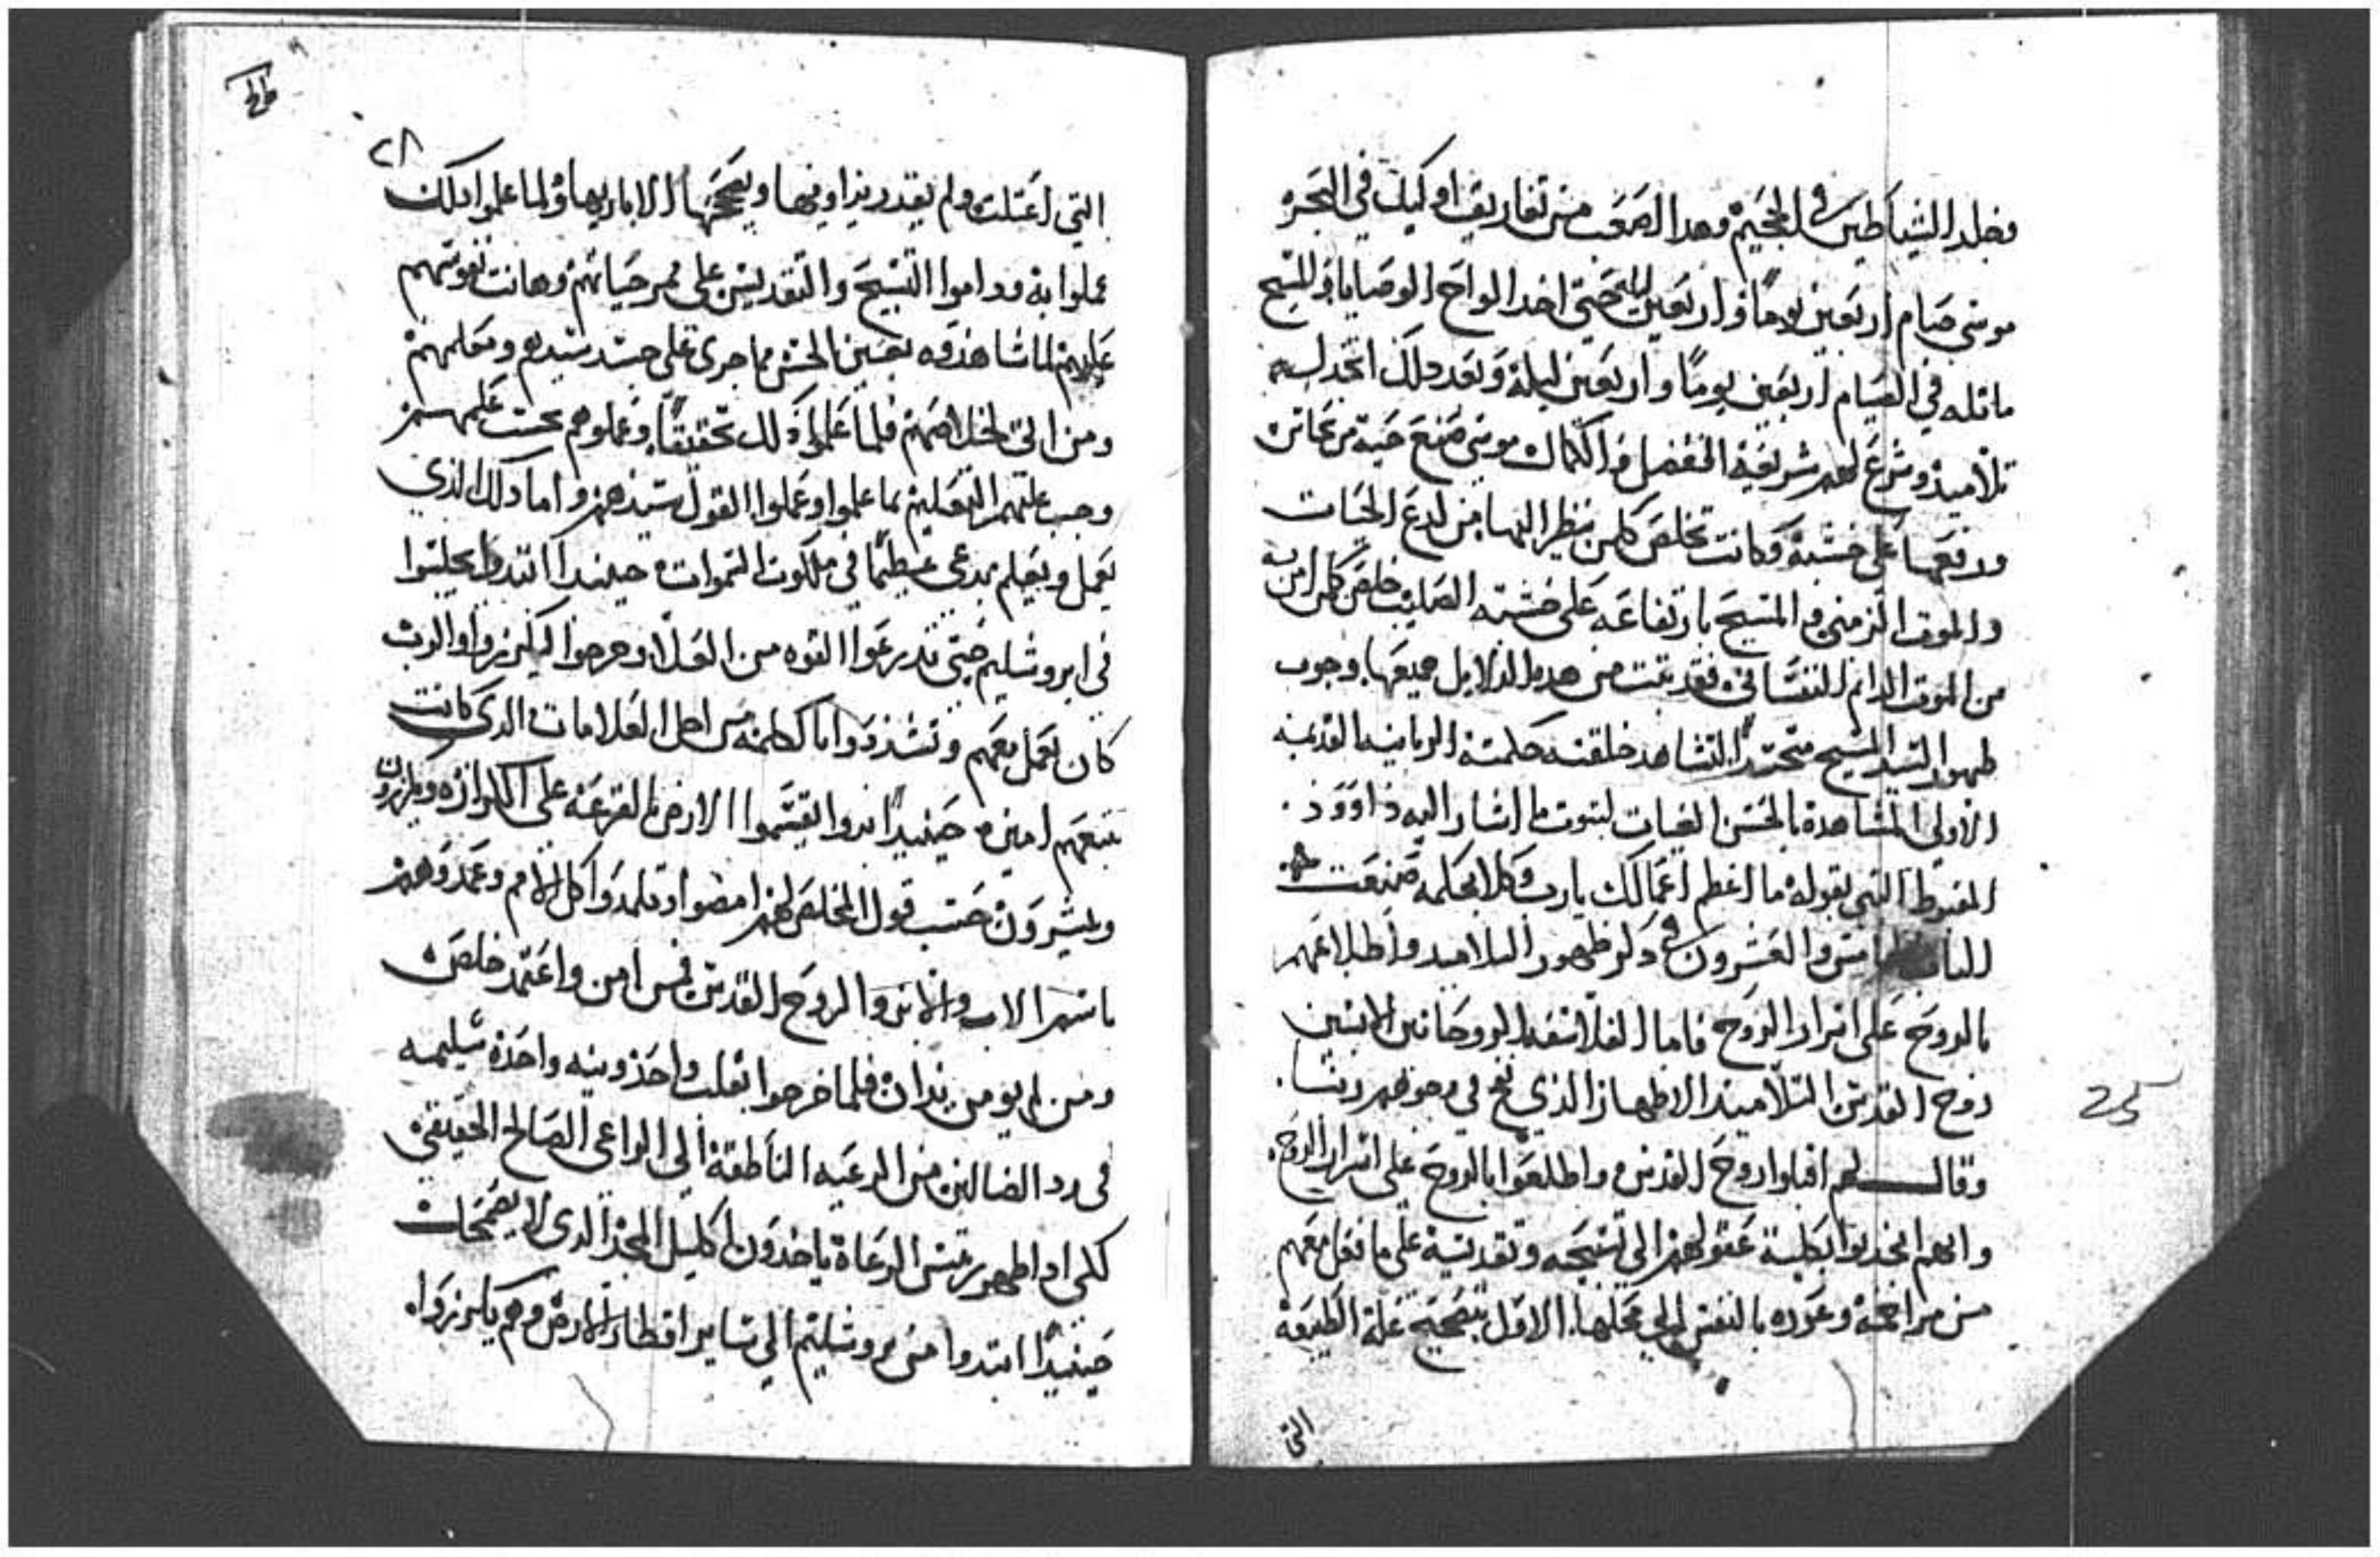 فخلد الشياطين في الجحيم وهذا اصعب من تفاريق اوليك في البحر
موسى صام اربعين يوما واربعين ليله حتى اخد الواح الوصايا والمسيح
ماتله في الصيام اربعين يوما واربعين ليلة وبعد دلك اتخد له
تلاميذ وشرع لهم شريعة الفضل والكمال موسى صنع حية من نحاس
ورفعها على خشبة وكانت تخلص كلمن ينظر اليها من لدغ الحيات
والموت الزمني والمسيح بارتفاعه على خشبة الصليب خلص كلمن امن به
من الموت الدايم النفساني فقد تبت من هده الدلايل جميعها وجوب
ظهور السيد المسيح متجسدا لتشاهد خلقته حكمته الربانيه القديمه
الاولى المشاهدة بالحس العيان لنبوت ما اشار اليه داوود
المغبوط النبي بقوله ما اعظم اعمالك يارب وكلا بحكمه صنعت
الباب الخامس والعشرون في دكر ظهور التلاميد واطلاعهم
بالروح على اسرار الروح فاما الفلاسفه الروحانين الابسين
روح القدس التلاميد الاطهار الذي نفخ في وجوههم ربنا
وقال لهم اقبلوا روح القدس واطلعوا بالروح على اسرار الروح
وانهم انجدبوا بكلية عقولهم الى تسبيحه وتقديسه على ما فعل معهم
من مراجعة وعوده بالنفس الى محلها الاول بتصحيح علة الطبيعة
التي
كح
٢٨
التي اعتلت ولم يقدر يداويها ويصححها الا باريها ولما علموا دلك
عملوا به وداموا التسبيح والتقديس على ممر حياتهم وهانت نفوسهم
عليهم لما شاهدوه بعين الحس مما جرى على جسد سيدهم ومعلمهم
ومن اتى لخلاصهم فلما علموا ذلك تحقيقا وعملوهم بحسب علمهم
وجب عليهم التعليم بما علموا وعملوا لقول سيدهم واما دلك الذي
يعمل ويعلم يدعى عظيما في ملكوت السموات حينيد ابتدوا يجلسوا
في ايروشليم حتى تدرعوا القوه من العلا وخرجوا ليكرزوا والرب
كان يعمل معهم وتشددوا بالكلمه من اجل العلامات الدي كانت
تتبعهم امين حينيدا بدوا يقتسموا الارض بالقرعه على الكرازه ويكرزون
ويبشرون حسب قول المخلص لهم امضوا وتلمدوا كل الامم وعمدوهم
باسم الاب والابن والروح القدس فمن امن واعتمد خلص
ومن لم يومن يدان فلما خرجوا بقلب واحد ونيه واحدة سليمه
في رد الضالين من الرعيه الناطقة الى الراعي الصالح الحقيقي
لكى ادا ظهر رييس الرعاة ياخدون اكليل المجد الدي لا يضمحل
حينيدا ابتدوا من يروشليم الى ساير اقطار الارض وهم يكرزوا